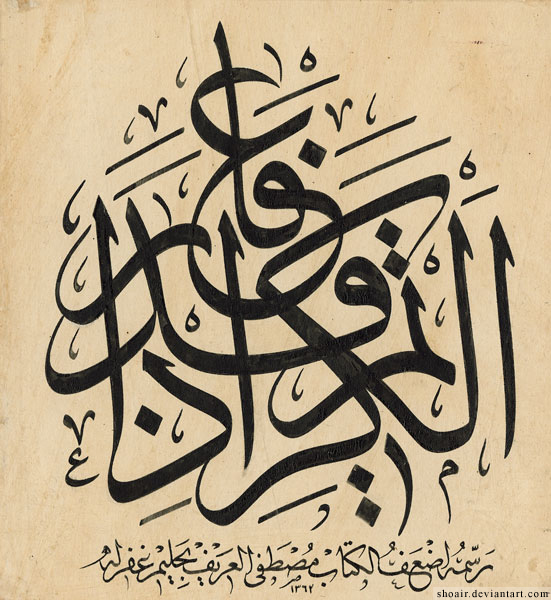 الكريم اذا قدر عفا
رسمه اضعف الكتاب مصطفى العريف بحليم غفر له
١٣٦٢
shoair.deviantart.com